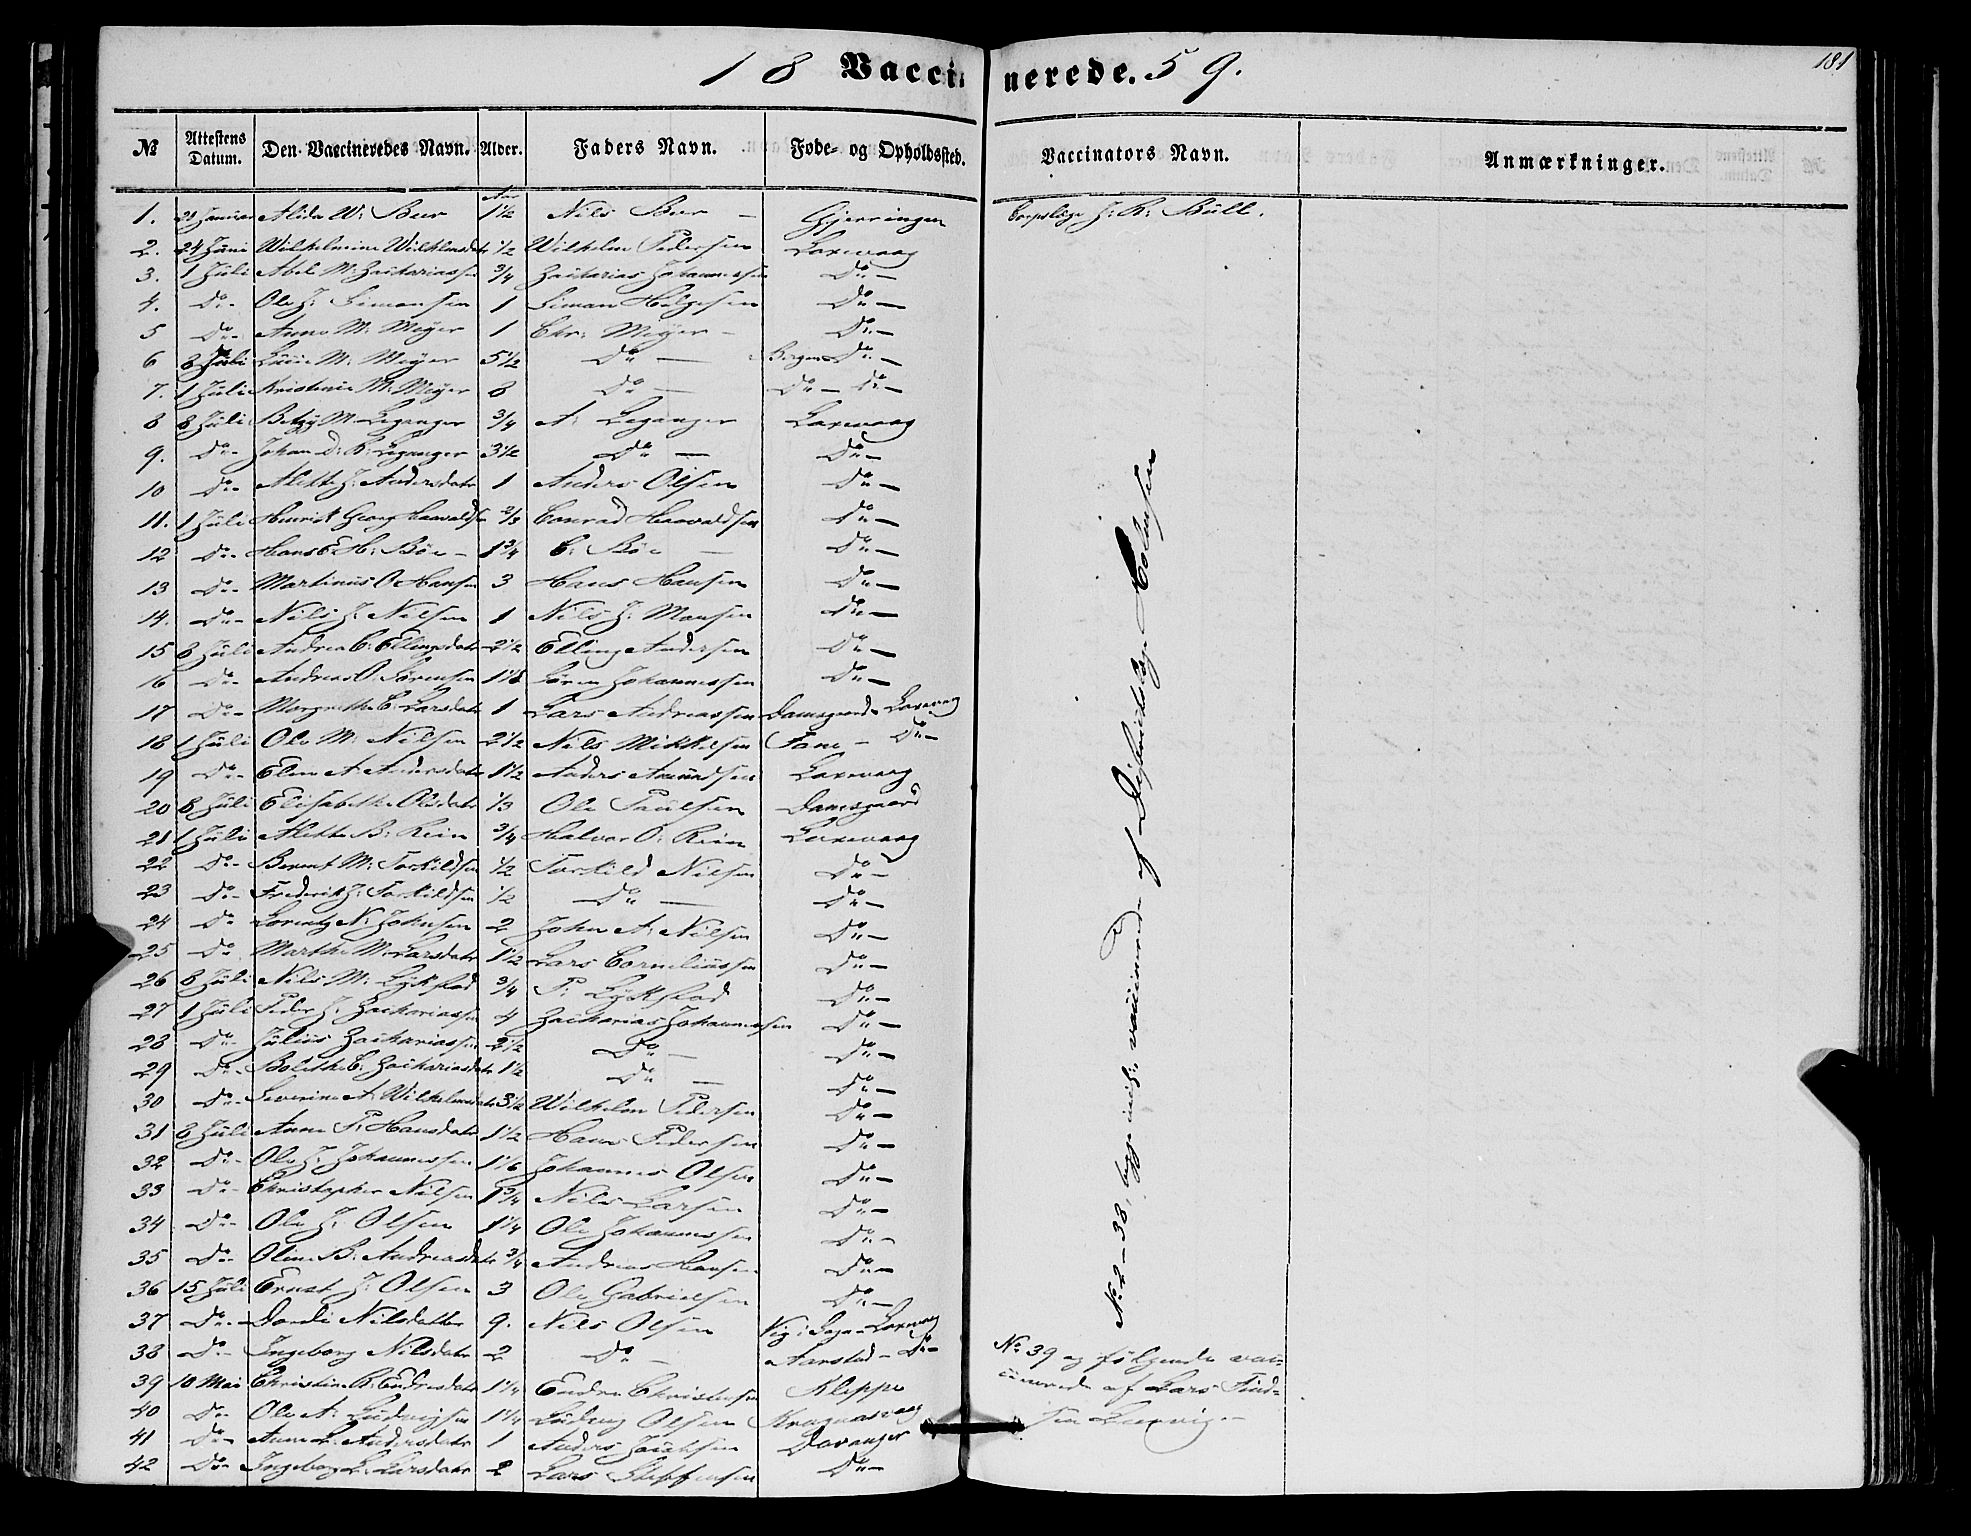 18 Vaccinerede. 59.
181
№ Attestens Datum. Den Vaccineredes Navn. Alder. Faders Navn. Føde- og Opholdssted. Vaccinators Navn. Anmærkninger.
Aar
1. 21 Januar Alida W: Bur 1½ Nils Bur — Gjerringen Corpslæge J: R: Büll.
2. 24 Juni Wilhelmine Wilhelmsdatr ½ Wilhelm Pedersen Laxevaag
3. 1 Juli Abel M. Zachariassen ¾ Zacharias Johannessen Do —
4. Do - Ole J: Simonsen 1 Simon Helgesen Do —
5 Do - Anne M: Meÿer 1 Chr: Meÿer - Do —
6 8 Juli Lucie M: Meÿer 5½ Do — Bergen - Do —
7. 1 Juli Kristence M: Meÿer 8 Do — Do — Do —
8 8 Juli Betzy M. Leganger ¾ A: Leganger Laxevaag
9. Do - Johan d: R: Leganger 3½ Do — Do —
10 Do - Alette J: Andersdatr 1 Anders Olsen Do —
11. 1 Juli Henrik Georg Haavaldsen ⅔ Conrad Haavaldsen Do —
12 Do - Hans E. H: Böe - 1¾ C: Böe — Do —
13 Do - Martinus O Hansen 3 Hans Hansen Do —
14. Do - Nils J: Nilsen 1 Nils J: Monsen Do —
15 8 Juli Andrea C: Ellingsdatr 2½ Elling Andersen Do —
16 Do - Andreas O Sörensen Sören Johannessen Do —
17 Do - Margrethe C: Larsdatr 1 Lars Andreassen Damsgaard - Laxevaag
18 1 Juli Ole M: Nilsen 2½ Nils Mikkelsen Fane - Do —
19 Do - Elen A: Andersdatr 1½ Anders Amundsen Laxevaag
20 8 Juli Elisabethe Olsdatr ⅓ Ole Paulsen Damsgaard
21 1 Juli Alette B: Rein ¾ Halvor O: Rein Laxevaag
22 Do - Bernt M: Torkildsen ½ Torkild Nilsen Do —
23 Do - Frederik J: Torkildsen ½ Do — Do —
24 Do Lorentz N: Johnsen 2 John A: Nilsen Do —
25 Do Marthe M: Larsdatr 1½ Lars Corneliussen Do —
26 8 Juli Nils M: Lÿkstad ¾ P: Lÿkstad Do —
27 1 Juli Peder J: Zachariassen 4 Zacharias Johannessen Do —
28 Do - Julius Zachariassen 2½ Do — Do —
29 Do - Bolethe C: Zachariasdatr 1½ Do — Do —
30 Do - Severine A: Wilhelmsdatr 3½ Wilhelm Pedersen Do —
31 8 Juli Anne P: Hansdatr 1½ Hans Pedersen Do —
32 Do - Ole J: Johannessen 1⅙ Johannes Olsen Do —
33 Do - Christopher Nilsen 1¾ Nils Larsen Do —
34 Do - Ole J: Olsen 1¼ Ole Johannessen Do —
35 Do - Oline B: Andreasdatr ¾ Andreas Hansen Do —
36 15 Juli Ernst J: Olsen 3 Ole Gabrielsen Do —
37 Do - Dordi Nilsdatter 9. Nils Olsen Vig i Sogn - Laxevaag
38 Do - Ingeborg Nilsdatr 2 Do — Aarstad - Do —
39 10 Mai Christine R: Endresdatr 1¼ Endre Christensen Kleppe
40 Do - Ole A: Ludvigsen 1¼ Ludvig Olsen
41 Do - Anne L. Andersdatr 1 Anders Jacobsen Davanger
42 Do - Ingeborg L: Larsdatr 2 Lars Steffensen Do —
No 2 - 38, begge incl:, vaccinerede af Districtslæge Holmsen
No 39 og følgende vac-
cinerede af Lars Find-
sen